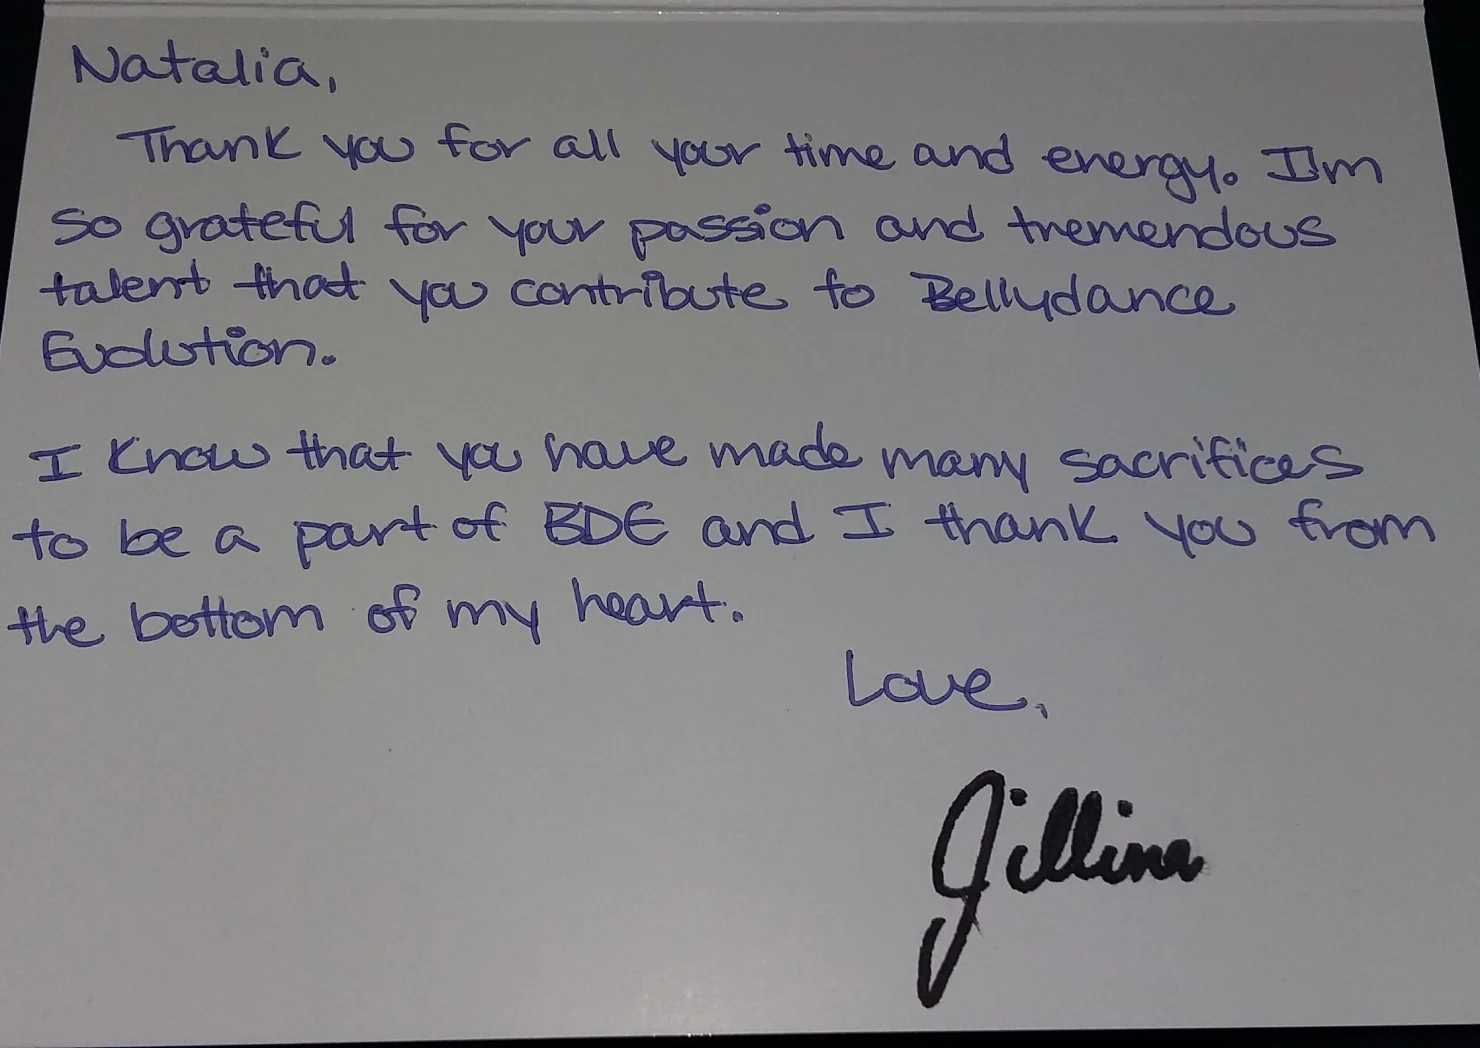 Natalia,
Thank you for all your time and energy. I'm
so grateful for your passion and tremendous
talent that you contribute to Bellydance
Evolution.
I know that you have made many sacrifices
to be a part of BDE and I thank you from
the bottom of my heart.
Love,
Jillina